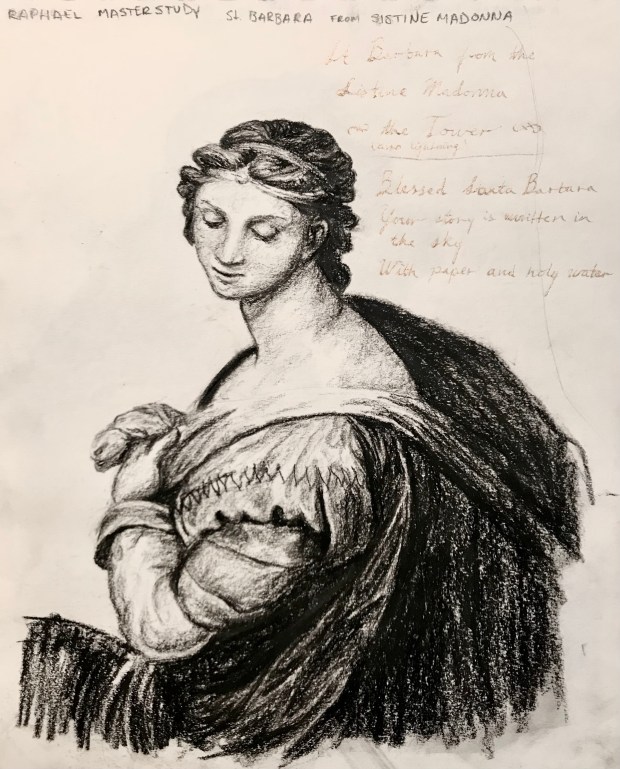 RAPHAEL MASTERSTUDY St. BARBARA FROM SISTINE MADONNA
St Barbara from the
Sistine Madonna
the Tower
Blessed Santa Barbara
Your story is written in
the sky
With paper and holy water